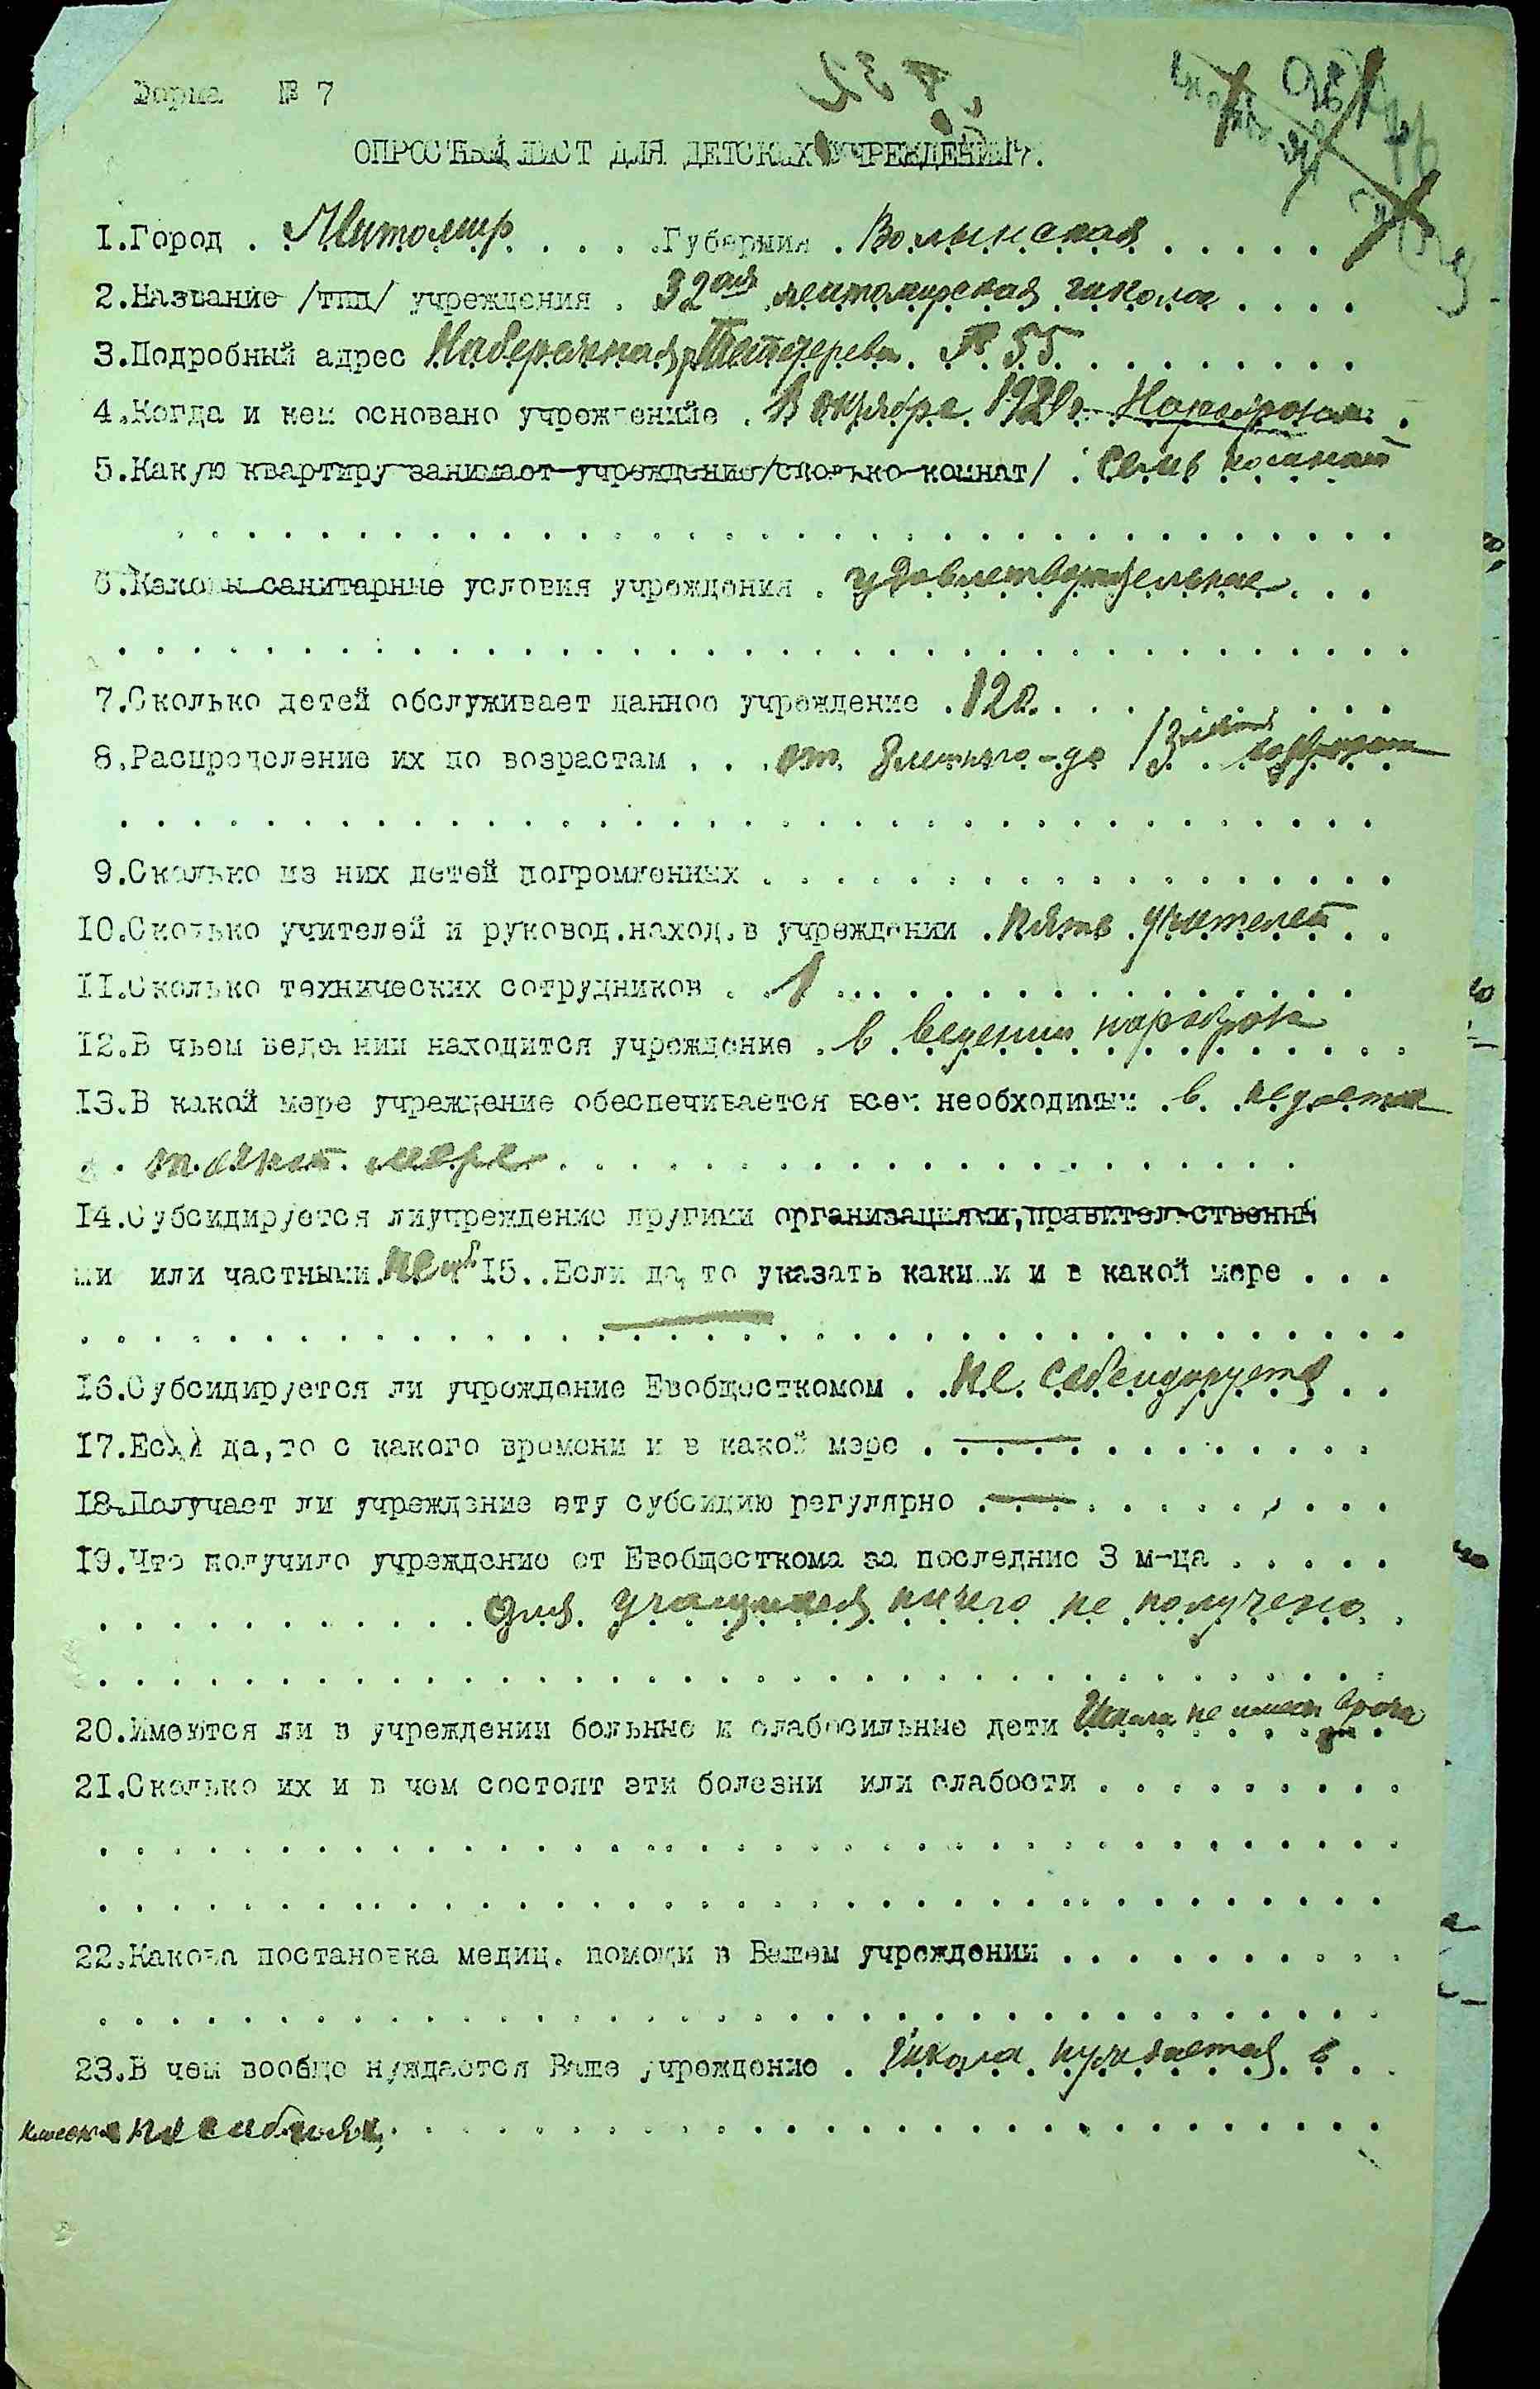 Форма № 7
№ 32
ОПРОСНЫЙ ЛИСТ ДЛЯ ДЕТСКИХ УЧРЕЖДЕНИЙ.
1.Город . Житомир . . . . Губерния . Волынская . . . . .
2.Название /тип/ учреждения . 32ая житомирская школа . . . .
3.Подробный адрес Набережная р. Тетерева. № 55 . . . . . . . .
4.Когда и кем основано учреждение . 1 октября 1920 г. Наробразом .
5.Какую квартиру занимает учреждение/сколько комнат/ . семь комнат
6.Каковы санитарные условия учреждения . удовлетворительные . . .
7.Сколько детей обслуживает данное учреждение . 120. . . . . . . . . .
8.Распределение их по возрастам . . . от 8летнего - до 13летнего возраста
9.Сколько из них детей погромленных . . . . . . . . . . . . . . . . . .
10.Сколько учителей и руковод.наход.в учреждении . пять учителей . .
11.Сколько технических сотрудников . . 1 . . . . . . . . . . . . . . .
12.В чьем ведении находится учреждение . в ведении наробраза
13.В какой мере учреждение обеспечивается всем необходимым . в недоста
точной мере . . . . . . . . . . . . . . . . . . . . .
14.Субсидируется лиучреждение другими организациями,правительственны
ми или частными. нет 15..Если да, то указать какими и в какой мере . . .
16.Субсидируется ли учреждение Евобщесткомом . . не субсидируется . .
17.Если да,то с какого времени и в какой мере . — . . . . . . . . .
18.Получает ли учреждение эту субсидию регулярно . — . . . . . . . . .
19.Что получило учреждение от Евобщесткома за последние 3 м-ца . . . . .
. . . . . . . . . . . для учащихся ничего не получено. .
20.Имеются ли в учреждении больные и слабосильные дети Школа не имеет врача
21.Сколько их и в чем состоят эти болезни или слабости . . . . . . . . .
22.Какова постановка медиц. помощи в Вашем учреждении . . . . . . . . . .
23.В чем вообще нуждается Ваше учреждение . Школа нуждается в . .
пособиях